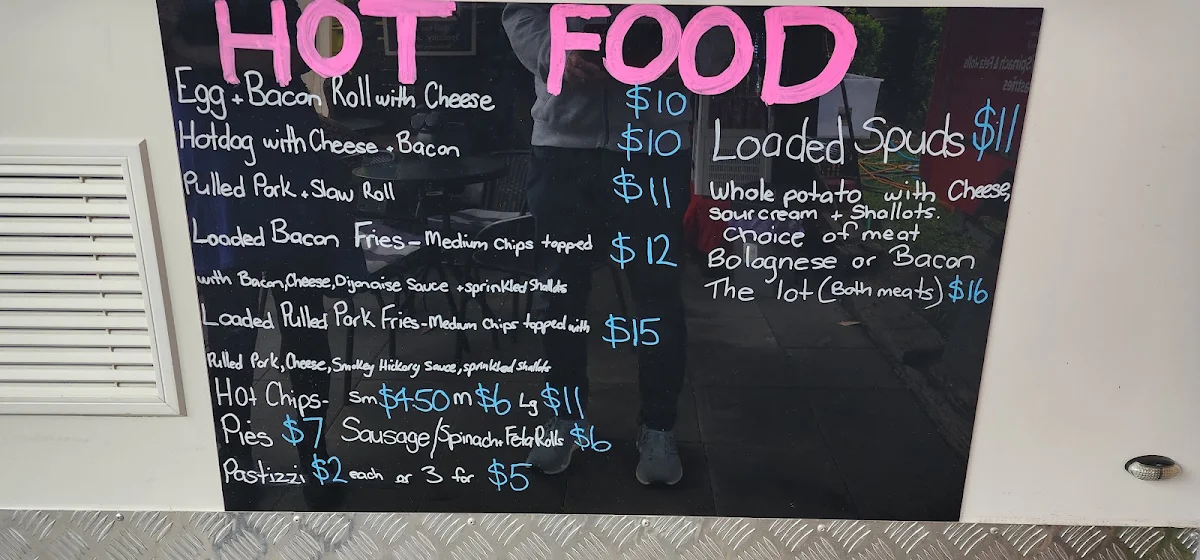 HOT FOOD
Egg + Bacon Roll with Cheese $10
Hotdog with Cheese + Bacon $10
Pulled Pork + Slaw Roll $11
Loaded Bacon Fries - Medium Chips topped $12
with Bacon, Cheese, Dijonaise Sauce + sprinkled Shallots
Loaded Pulled Pork Fries - Medium Chips topped with $15
Pulled Pork, Cheese, Smokey Hickory Sauce, sprinkled Shallots
Hot Chips - Sm $4.50 m $6 Lg $11
Pies $7 Sausage/Spinach + Feta Rolls $6
Pastizzi $2 each or 3 for $5
Loaded Spuds $11
Whole potato with Cheese,
sour cream + Shallots.
Choice of meat
Bolognese or Bacon
The lot (Both meats) $16
Spinach & Feta Rolls
astries